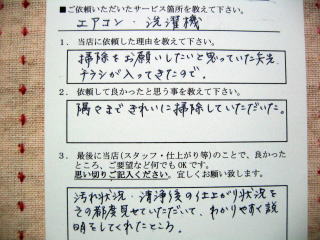 ■ご依頼いただいたサービス箇所を教えて下さい。
エアコン・洗濯機
１．当店に依頼した理由を教えて下さい。
掃除をお願いしたいと思っていた矢先、
チラシが入ってきたので。
２．依頼して良かったと思う事を教えて下さい。
隅々まできれいに掃除していただいた。
３．最後に当店(スタッフ・仕上がり等)のことで、良かった
ところ、ご要望など何でもOKです。
思い切りご記入ください。宜しくお願い致します。
汚れ状況・清浄後の仕上がり状況を
その都度見せていただいて、わかりやすく説
明をしてくれたところ。